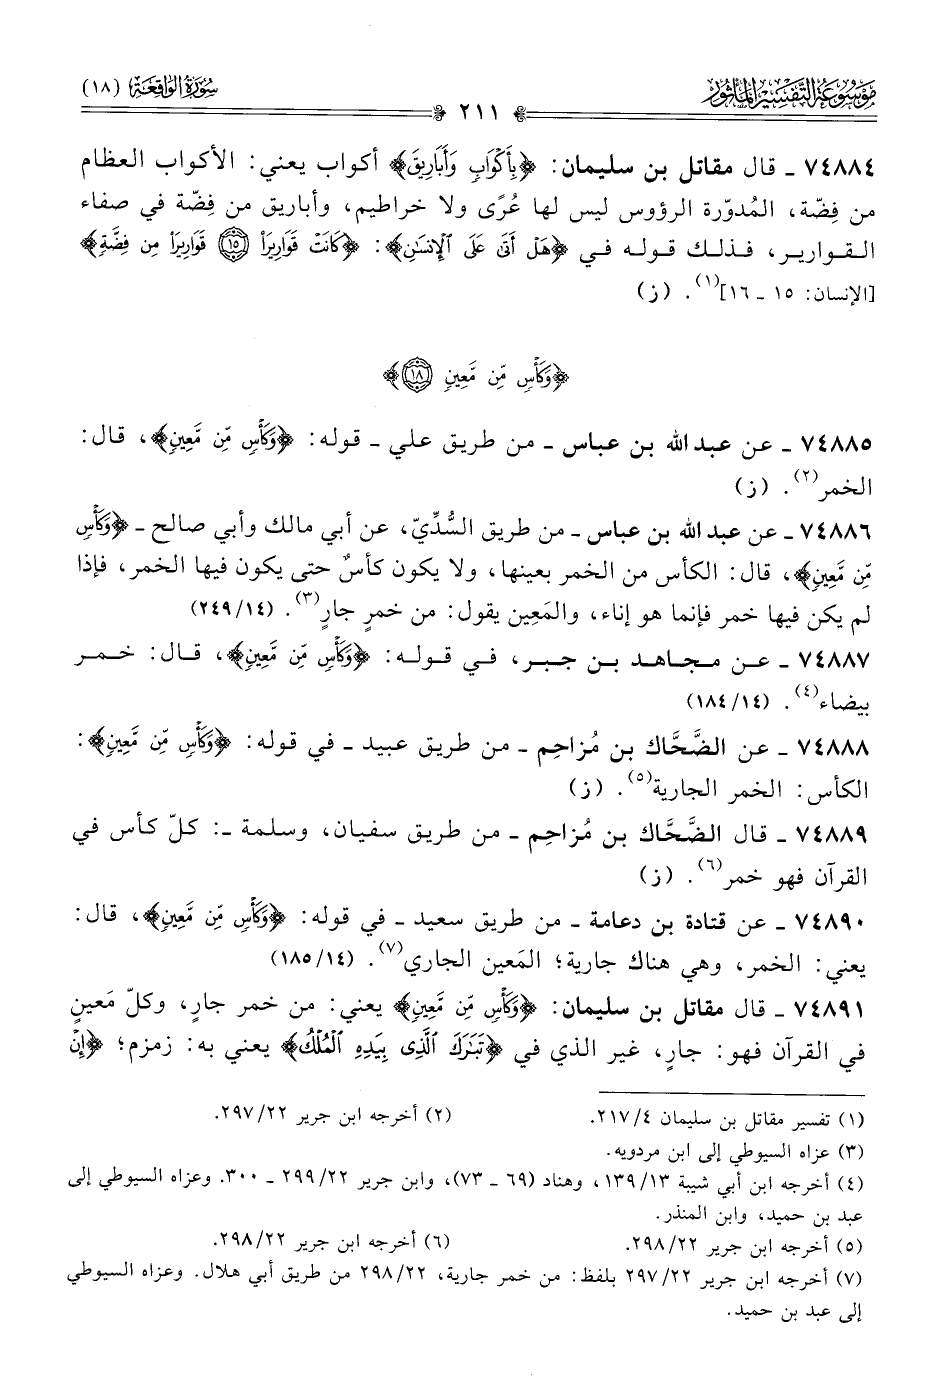 موسوعة التفسير المأثور
سورة الواقعة (١٨)
٢١١
٧٤٨٨٤ ـ قال مقاتل بن سليمان: ﴿بِأَكْوَابٍ وَأَبَارِيقَ﴾ أكواب يعني: الأكواب العظام
من فِضّة، المُدوّرة الرؤوس ليس لها عُرًى ولا خراطيم، وأباريق من فِضّة في صفاء
القوارير، فذلك قوله في ﴿هَلْ أَتَىٰ عَلَى ٱلْإِنسَٰنِ﴾: ﴿كَانَتْ قَوَارِيرَا۠ ١٥ قَوَارِيرَا۟ مِن فِضَّةٍ﴾
[الإنسان: ١٥ ـ ١٦](١). (ز)
﴿وَكَأْسٍ مِّن مَّعِينٍ ١٨﴾
٧٤٨٨٥ ـ عن عبد الله بن عباس ـ من طريق علي ـ قوله: ﴿وَكَأْسٍ مِّن مَّعِينٍ﴾، قال:
الخمر(٢). (ز)
٧٤٨٨٦ ـ عن عبد الله بن عباس ـ من طريق السُّدِّيّ، عن أبي مالك وأبي صالح ـ ﴿وَكَأْسٍ
مِّن مَّعِينٍ﴾، قال: الكأس من الخمر بعينها، ولا يكون كأسٌ حتى يكون فيها الخمر، فإذا
لم يكن فيها خمر فإنما هو إناء، والمَعِين يقول: من خمرٍ جارٍ(٣). (١٤/ ٢٤٩)
٧٤٨٨٧ ـ عن مجاهد بن جبر، في قوله: ﴿وَكَأْسٍ مِّن مَّعِينٍ﴾، قال: خمر
بيضاء(٤). (١٤/ ١٨٤)
٧٤٨٨٨ ـ عن الضَّحَّاك بن مُزاحِم ـ من طريق عبيد ـ في قوله: ﴿وَكَأْسٍ مِّن مَّعِينٍ﴾:
الكأس: الخمر الجارية(٥). (ز)
٧٤٨٨٩ ـ قال الضَّحَّاك بن مُزاحِم ـ من طريق سفيان، وسلمة ـ: كلّ كأس في
القرآن فهو خمر(٦). (ز)
٧٤٨٩٠ ـ عن قتادة بن دعامة ـ من طريق سعيد ـ في قوله: ﴿وَكَأْسٍ مِّن مَّعِينٍ﴾، قال:
يعني: الخمر، وهي هناك جارية؛ المَعين الجاري(٧). (١٤/ ١٨٥)
٧٤٨٩١ ـ قال مقاتل بن سليمان: ﴿وَكَأْسٍ مِّن مَّعِينٍ﴾ يعني: من خمر جارٍ، وكلّ مَعينٍ
في القرآن فهو: جارٍ، غير الذي في ﴿تَبَٰرَكَ ٱلَّذِى بِيَدِهِ ٱلْمُلْكُ﴾ يعني به: زمزم؛ ﴿إِنْ
(١) تفسير مقاتل بن سليمان ٤/ ٢١٧. (٢) أخرجه ابن جرير ٢٢/ ٢٩٧.
(٣) عزاه السيوطي إلى ابن مردويه.
(٤) أخرجه ابن أبي شيبة ١٣/ ١٣٩، وهناد (٦٩ ـ ٧٣)، وابن جرير ٢٢/ ٢٩٩ ـ ٣٠٠. وعزاه السيوطي إلى
عبد بن حميد، وابن المنذر.
(٥) أخرجه ابن جرير ٢٢/ ٢٩٨. (٦) أخرجه ابن جرير ٢٢/ ٢٩٨.
(٧) أخرجه ابن جرير ٢٢/ ٢٩٧ بلفظ: من خمر جارية، ٢٢/ ٢٩٨ من طريق أبي هلال. وعزاه السيوطي
إلى عبد بن حميد.